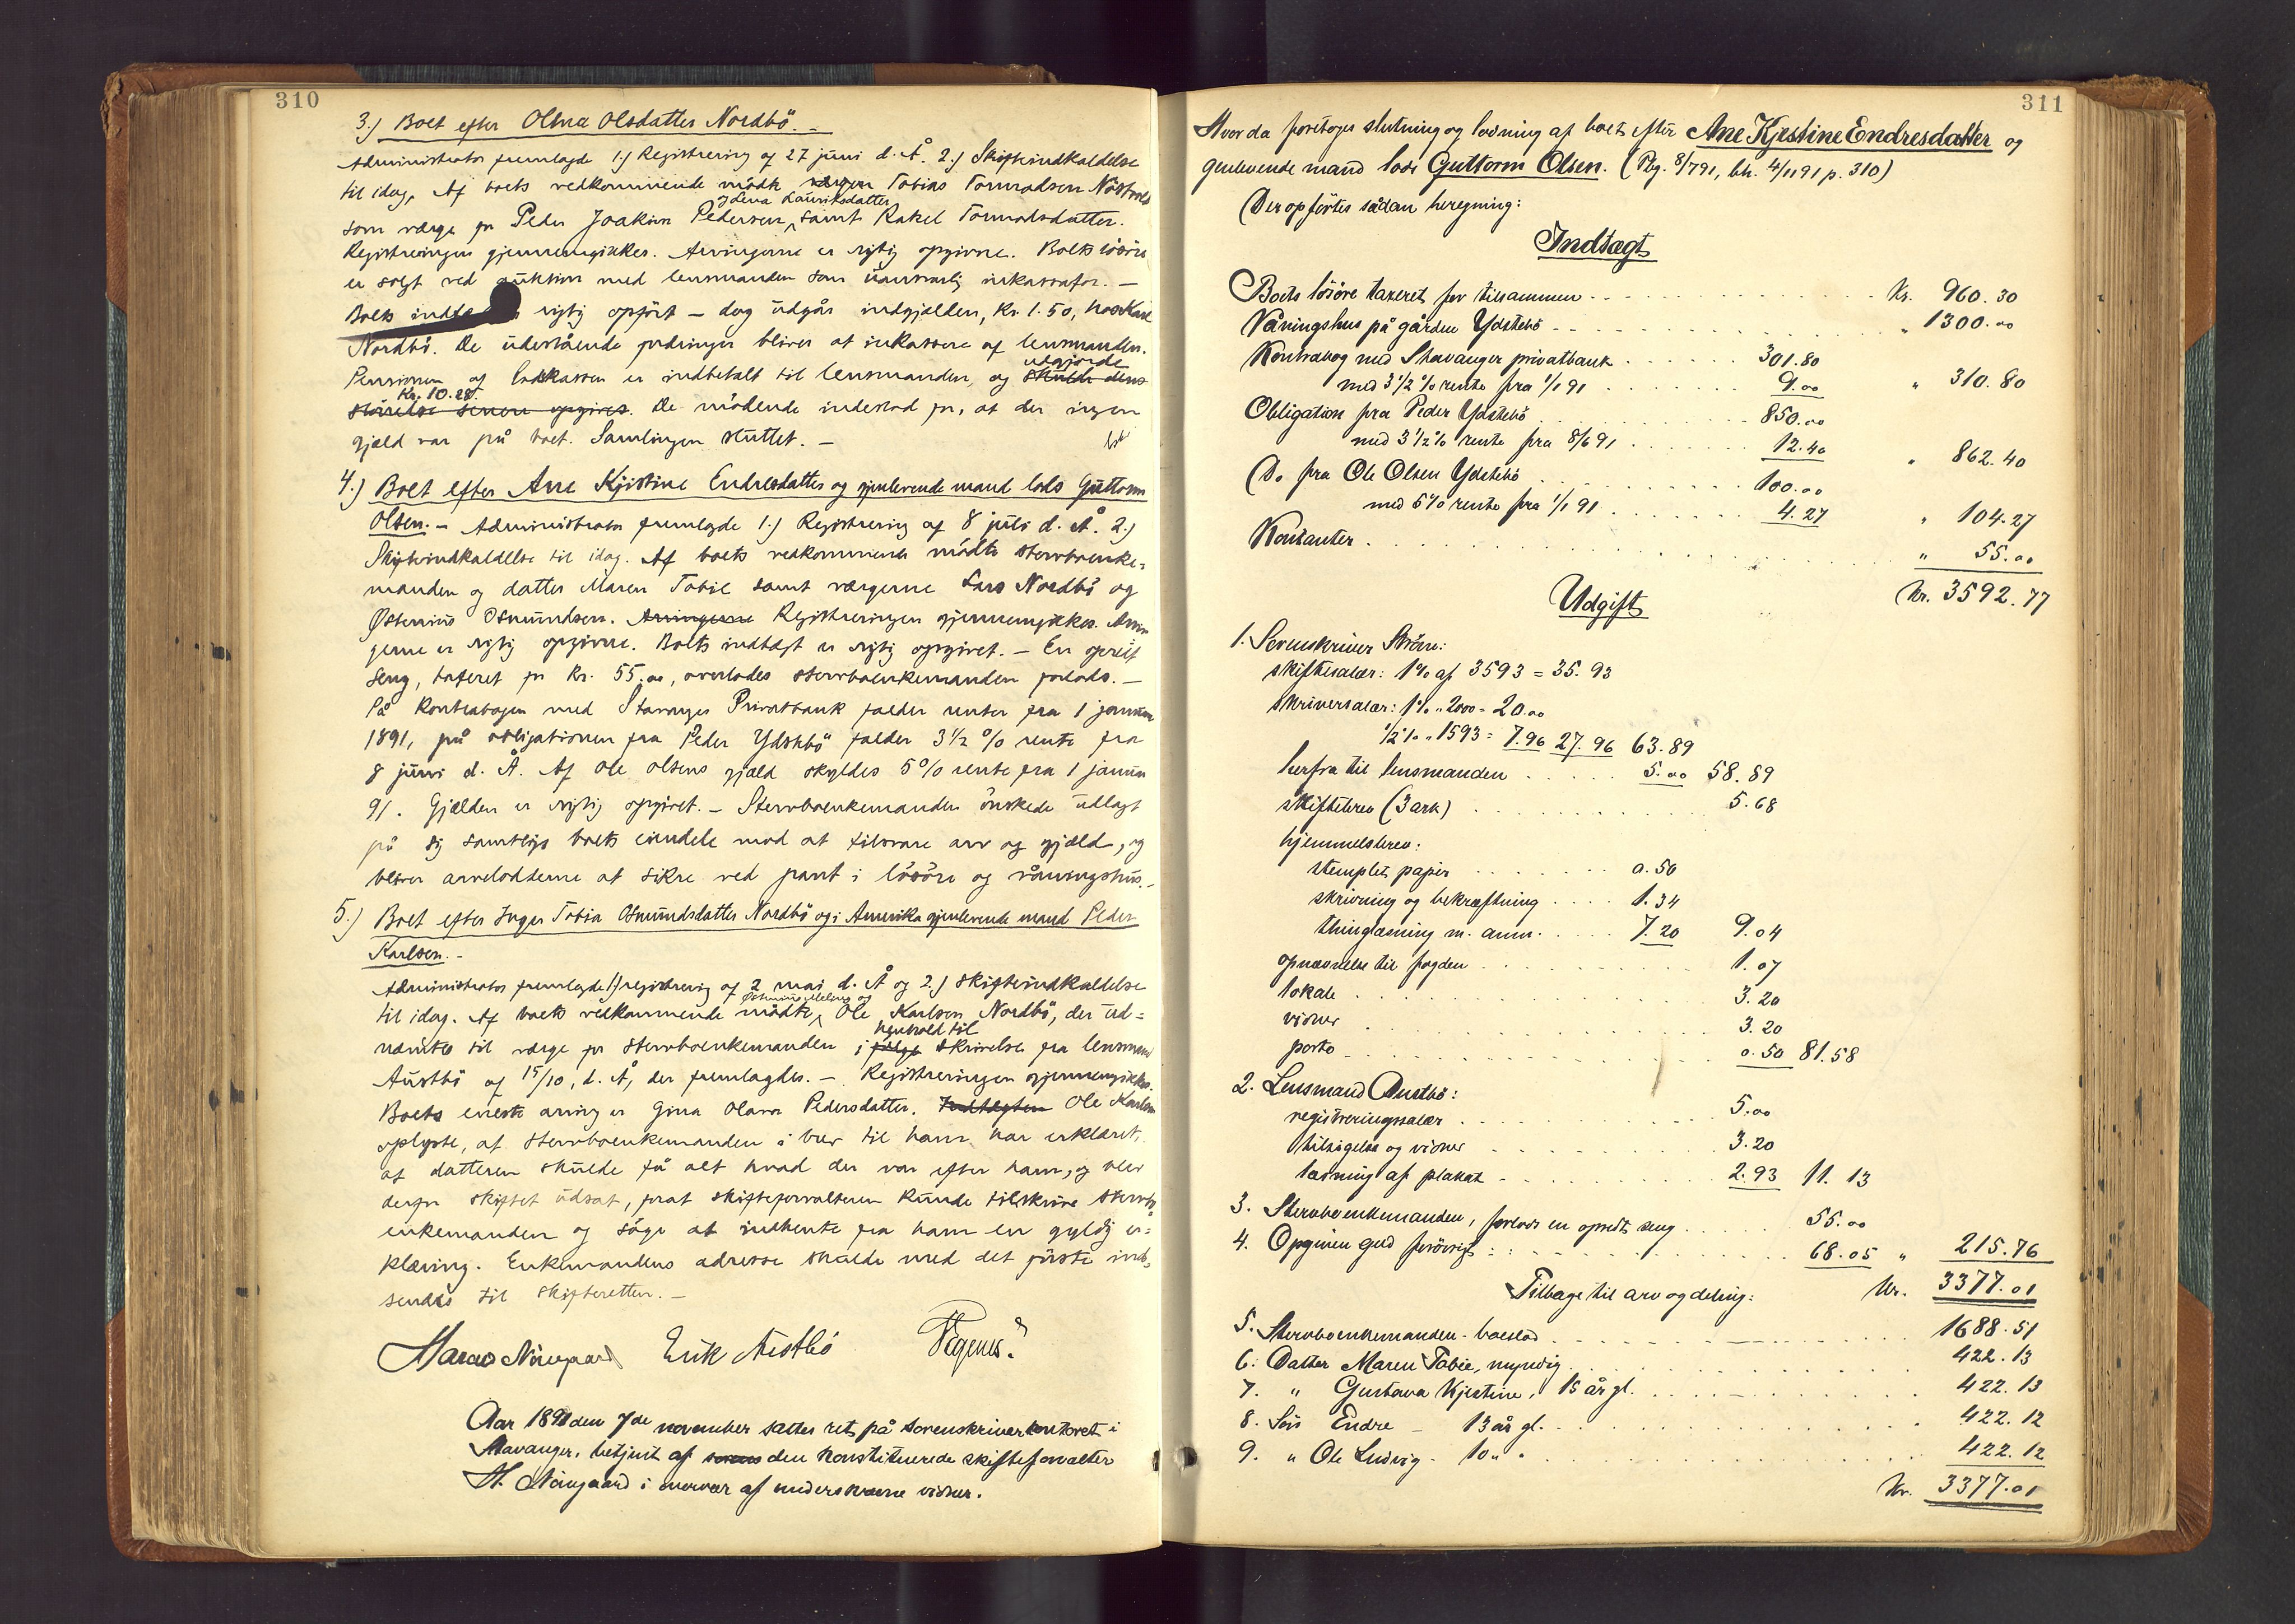 310
3.) Boet efter Olena Olsdatter Nordbö. –
Administrator fremlagde 1.) Registrering af 27 juni d. Å. 2.) Skifteindkaldelse
til idag. Af boets vedkommende mödte værgen Tobias Tormodsen
og Lena Lauriksdatter
som værge for Peder Joakim Pedersen, samt Rakel Tormodsdatter.
Registreringen gjennemgikkes. Arvingerne er rigtig opgivne. Boets lösöre
er solgt ved auktion med lensmanden som uansvarlig inkassator. –
Boets rigtig opfört – dog udgår indgjælden, Kr. 1.50, hos
Nordbö. De udestående fordringer bliver at inkassere af lensmanden.
udgjorde
Pensionen af Enkekassen er indbetalt til lensmanden, og skulde dens
Kr. 10.28.
störrelse senere opgives. De mödende indestod for, at der ingen
gjæld var på boet. Samlingen sluttet. –
4.) Boet efter Ane Kjistine Endresdatter og gjenlevende mand lods Guttorm
Olsen. – Administrator fremlagde 1.) Registrering af 8 juli d. Å. 2.)
Skifteindkaldelse til idag. Af boets vedkommende mödte stervboenke-
manden og datter Maren Tobie samt værgerne Lars Nordbö og
Østenius Osmundsen. Arvingerne Registreringen gjennemgikkes. Arvin
gerne er rigtig opgivne. Boets indtægt er rigtig opgivet. – En opredt
seng, taxeret for Kr. 55.00, overlodes stervboenkemanden forlods. –
På Kontrabogen med Stavanger Privatbank falder renter fra 1 januar
1891, på obligationen fra Peder Ydstebö falder 3 1/2 % rente fra
8 juni d. Å. Af Ole Olsens gjæld skyldes 5 % rente fra 1 januar
91. Gjælden er rigtig opgivet. – Stervboenkemanden önskede udlagt
på sig samtlige boets eiendele mod at tilsvare arv og gjæld, og
bliver arvelodderne at sikre ved pant i lösöre og våningshus. –
5.) Boet efter Inger Tobia Osmundsdatter Nordbö og i Amerika gjenlevende mand Peder
Karlsen. –
Administrator fremlagde 1.) registrering af 2 mai d. Å og 2.) skifteindkaldelse
til idag. Af boets vedkommende mödte, Ole Karlsen Nordbö, der ud=
henhold til
nævntes til værge for stervboenkemanden i følge skrivelse fra lensmand
Austbö af 15/10, d. Å, der fremlagdes. – Registreringen gjennemgikkes.
Boets eneste arving er Gina Olava Pedersdatter. Indtægten Ole Karlsen
oplyste, at stervboenkemanden i brev til ham har erklæret,
at datteren skulde få alt hvad der var efter ham, og blev
derfor skiftet udsat, forat skifteforvalteren kunde tilskrive stervbo=
enkemanden og söge at indhente fra ham en gyldig er=
klæring. Enkemandens adresse skulde med det förste ind=
sendes til skifteretten. –
Marao Nörgaard Erik Austbö
Aar 1891 den 7de november sattes ret på sorenskriverkontoret i
Stavanger, betjent af sorens den konstituerede skifteforvalter
H. Nörgaard i overvær af underskrevne vidner.
311
Hvor da foretoges slutning og lovning af boet efter Ane Kjestine Endresdatter og
gjenlevende mand lods Guttorm Olsen. (Reg. 8/7 91, beh. 4/11 91 p. 310)
Der opførtes sådan beregning:
Indtægt
Boets lösöre taxeret for tilsammen Kr. 960.30
Våningshus på gården Ydstebö " 1300.00
Kontrabog med Stavanger privatbank 301.80
med 3 1/2 % rente fra 1/1 91 9.00 " 310.80
Obligation fra Peder Ydstebö 850.00
med 3 1/2 % rente fra 8/6 91 12.40 " 862.40
Do fra Ole Olsen Ydstebö 100.00
med 5 % rente fra 1/1 91 4.27 " 104.27
Kontanter " 55.00
Kr. 3592.77
Udgift
1. Sorenskriver Ström:
skiftesalær: 1 % af 3593 = 35.93
skriversalær: 1 % " 2000 = 20.00
1/2 % " 1593 = 7.96 27.96 63.89
herfra til lensmanden 5.00 58.89
skiftebrev (3 ark) 5.68
hjemmelsbrev:
stemplet papir 0.50
skrivning og bekræftning 1.34
thinglæsning m. anm. 7.20 9.04
opnævnelse til fogden 1.07
lokale 3.20
vidner 3.20
porto 0.50 81.58
2. Lensmand Austbö:
registreringssalær 5.00
tilsigelse og vidner 3.20
læsning af plakat 2.93 11.13
3. Stervboenkemanden, forlods en opredt seng 55.00
4. Opgiven gjæld forövrigt 68.05 " 215.76
Tilbage til arv og deling: Kr. 3377.01
5. Stervboenkemanden – boeslod 1688.51
6. Datter Maren Tobie, myndig 422.13
7. " Gustava Kjestine, 15 år gl. 422.13
8. Sön Endre – 13 år gl. 422.12
9. " Ole Ludvig – 10 " " 422.12
Kr. 3377.01